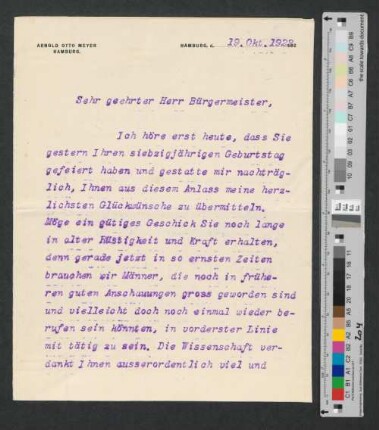 ARNOLD OTTO MEYER
HAMBURG.
HAMBURG, d. 19. Okt. 1922
Sehr geehrter Herr Bürgermeister,
Ich höre erst heute, dass Sie
gestern Ihren siebzigjährigen Geburtstag
gefeiert haben und gestatte mir nachträg-
lich, Ihnen aus diesem Anlass meine herz-
lichsten Glückwünsche zu übermitteln.
Möge ein gütiges Geschick Sie noch lange
in alter Rüstigkeit und Kraft erhalten,
denn gerade jetzt in so ernsten Zeiten
brauchen wir Männer, die noch in frühe-
ren guten Anschauungen gross geworden sind
und vielleicht doch noch einmal wieder be-
rufen sein könnten, in vorderster Linie
mit tätig zu sein. Die Wissenschaft ver-
dankt Ihnen ausserordentlich viel und
the scale towards document
204